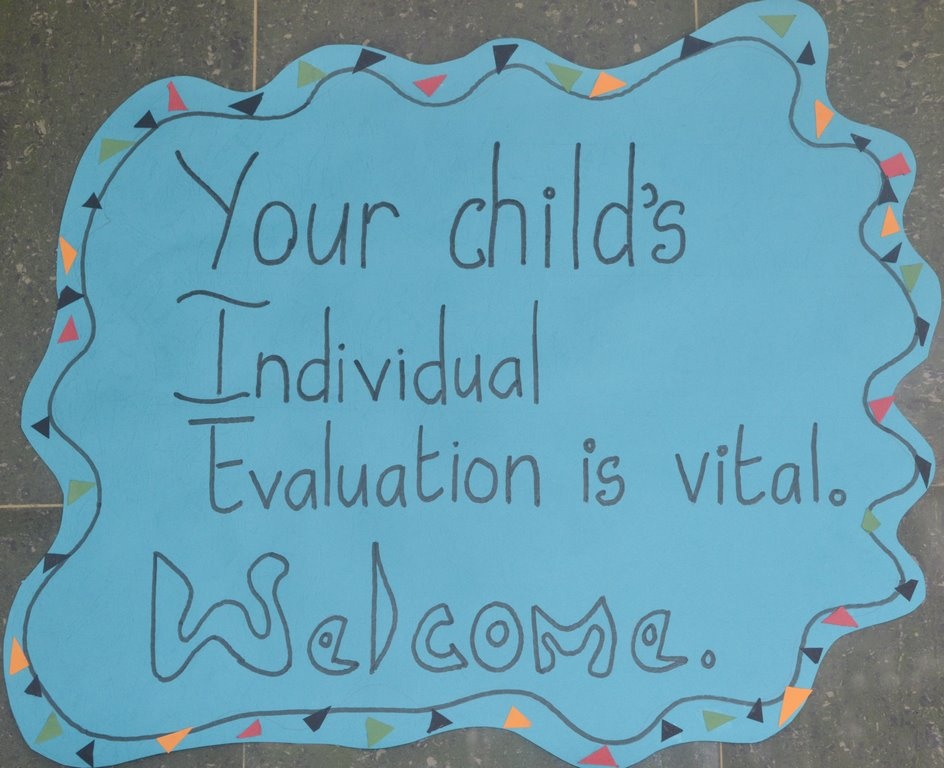 Your child's
Individual
Evaluation is vital.
Welcome.